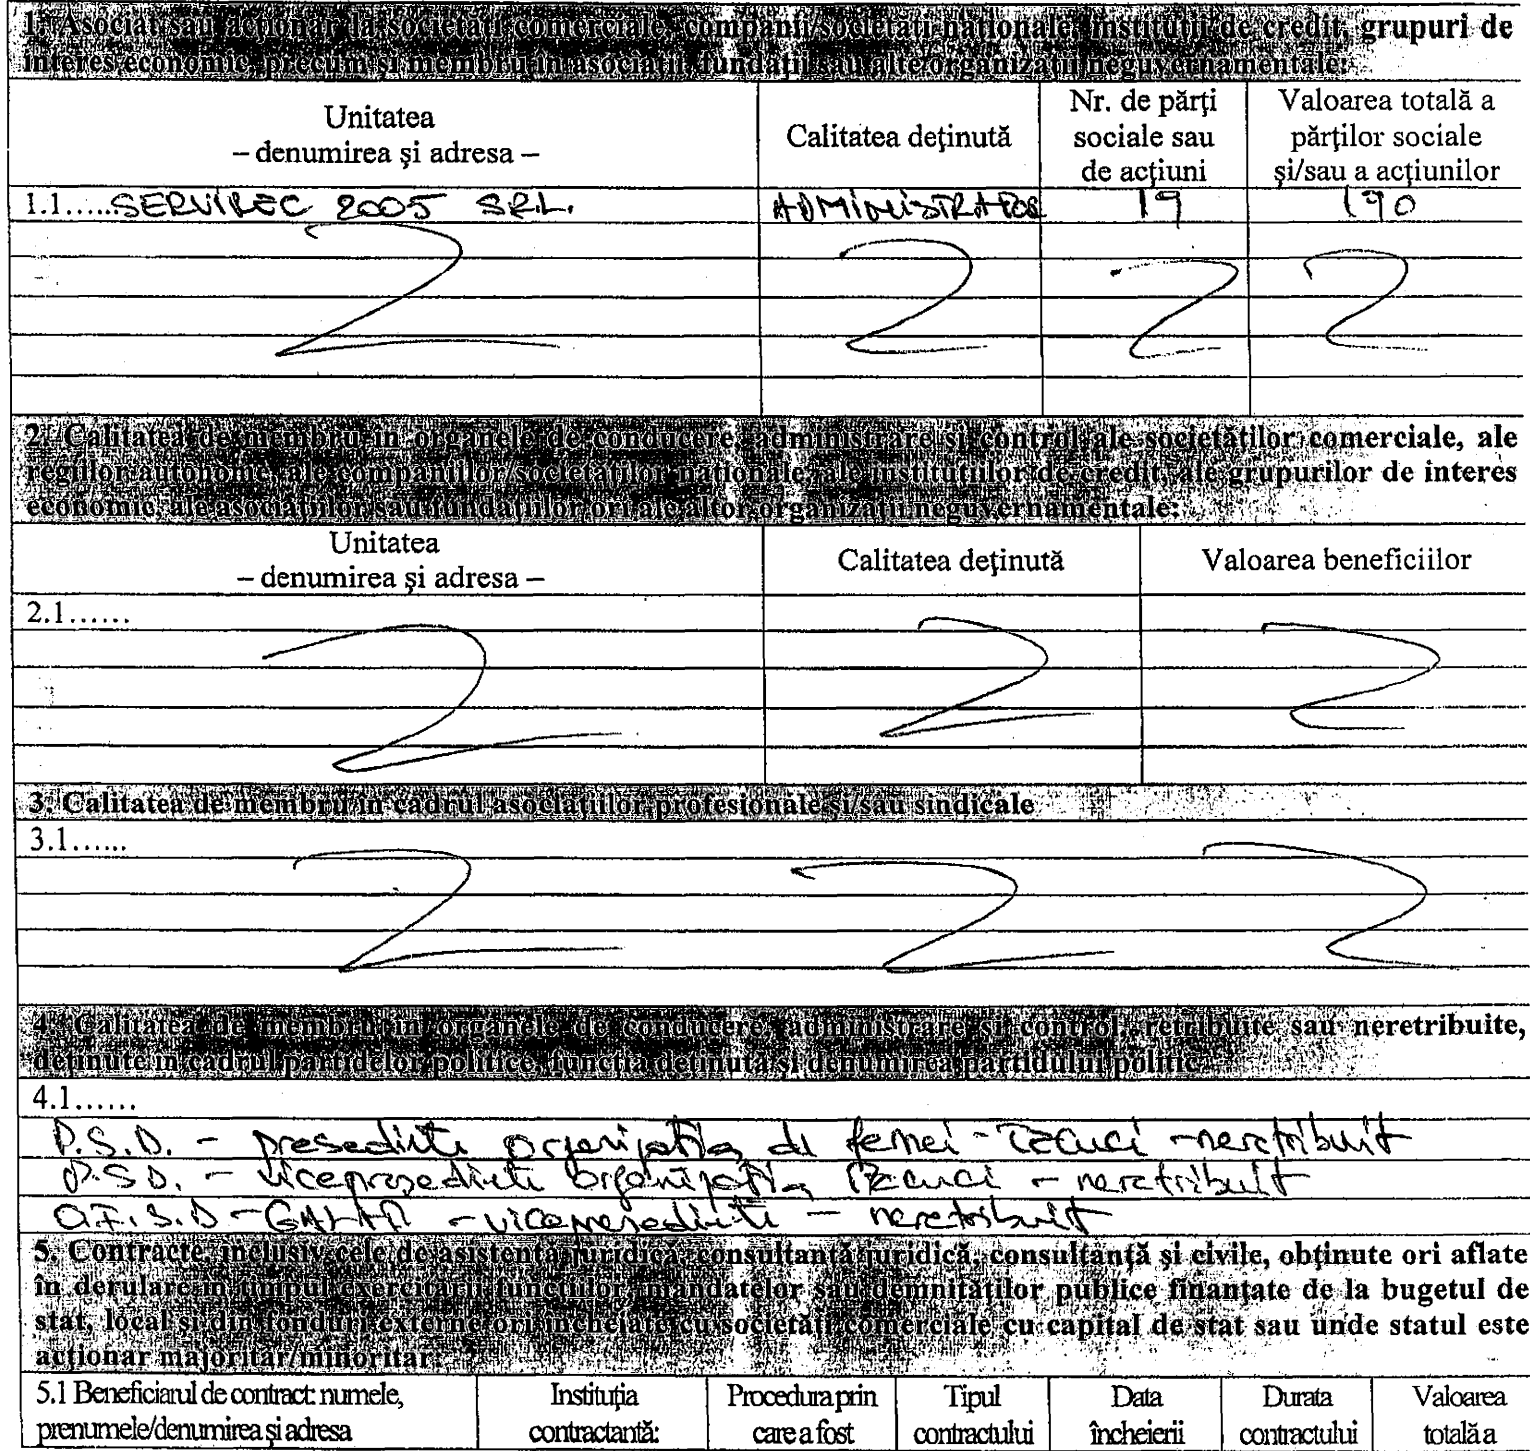 1. Asociat sau acţionar la societăţi comerciale, companii/societăţi naţionale, instituţii de credit, grupuri de
interes economic, precum şi membru în asociaţii, fundaţii sau alte organizaţii neguvernamentale:
Unitatea
– denumirea şi adresa –
Calitatea deţinută
Nr. de părţi
sociale sau
de acţiuni
Valoarea totală a
părţilor sociale
şi/sau a acţiunilor
1.1......SERVIREC 2005 SRL.
ADMINISTRATOR
19
190
2. Calitatea de membru în organele de conducere, administrare şi control ale societăţilor comerciale, ale
regiilor autonome, ale companiilor/societăţilor naţionale, ale instituţiilor de credit, ale grupurilor de interes
economic, ale asociaţiilor sau fundaţiilor ori ale altor organizaţii neguvernamentale:
Unitatea
– denumirea şi adresa –
Calitatea deţinută
Valoarea beneficiilor
2.1......
3. Calitatea de membru în cadrul asociaţiilor profesionale şi/sau sindicale
3.1......
4. Calitatea de membru în organele de conducere, administrare şi control, retribuite sau neretribuite,
deţinute în cadrul partidelor politice, funcţia deţinută şi denumirea partidului politic
4.1......
P.S.D. - presedinte organizatia de femei - Tecuci - neretribuit
P.S.D. - vicepresedinte organizatia Tecuci - neretribuit
O.F.S.D - GALATI - vicepresedinte - neretribuit
5. Contracte, inclusiv cele de asistenţă juridică, consultanţă juridică, consultanţă şi civile, obţinute ori aflate
în derulare în timpul exercitării funcţiilor, mandatelor sau demnităţilor publice finanţate de la bugetul de
stat, local şi din fonduri externe ori încheiate cu societăţi comerciale cu capital de stat sau unde statul este
acţionar majoritar/minoritar:
5.1 Beneficiarul de contract: numele,
prenumele/denumirea şi adresa
Instituţia
contractantă:
Procedura prin
care a fost
Tipul
contractului
Data
încheierii
Durata
contractului
Valoarea
totală a